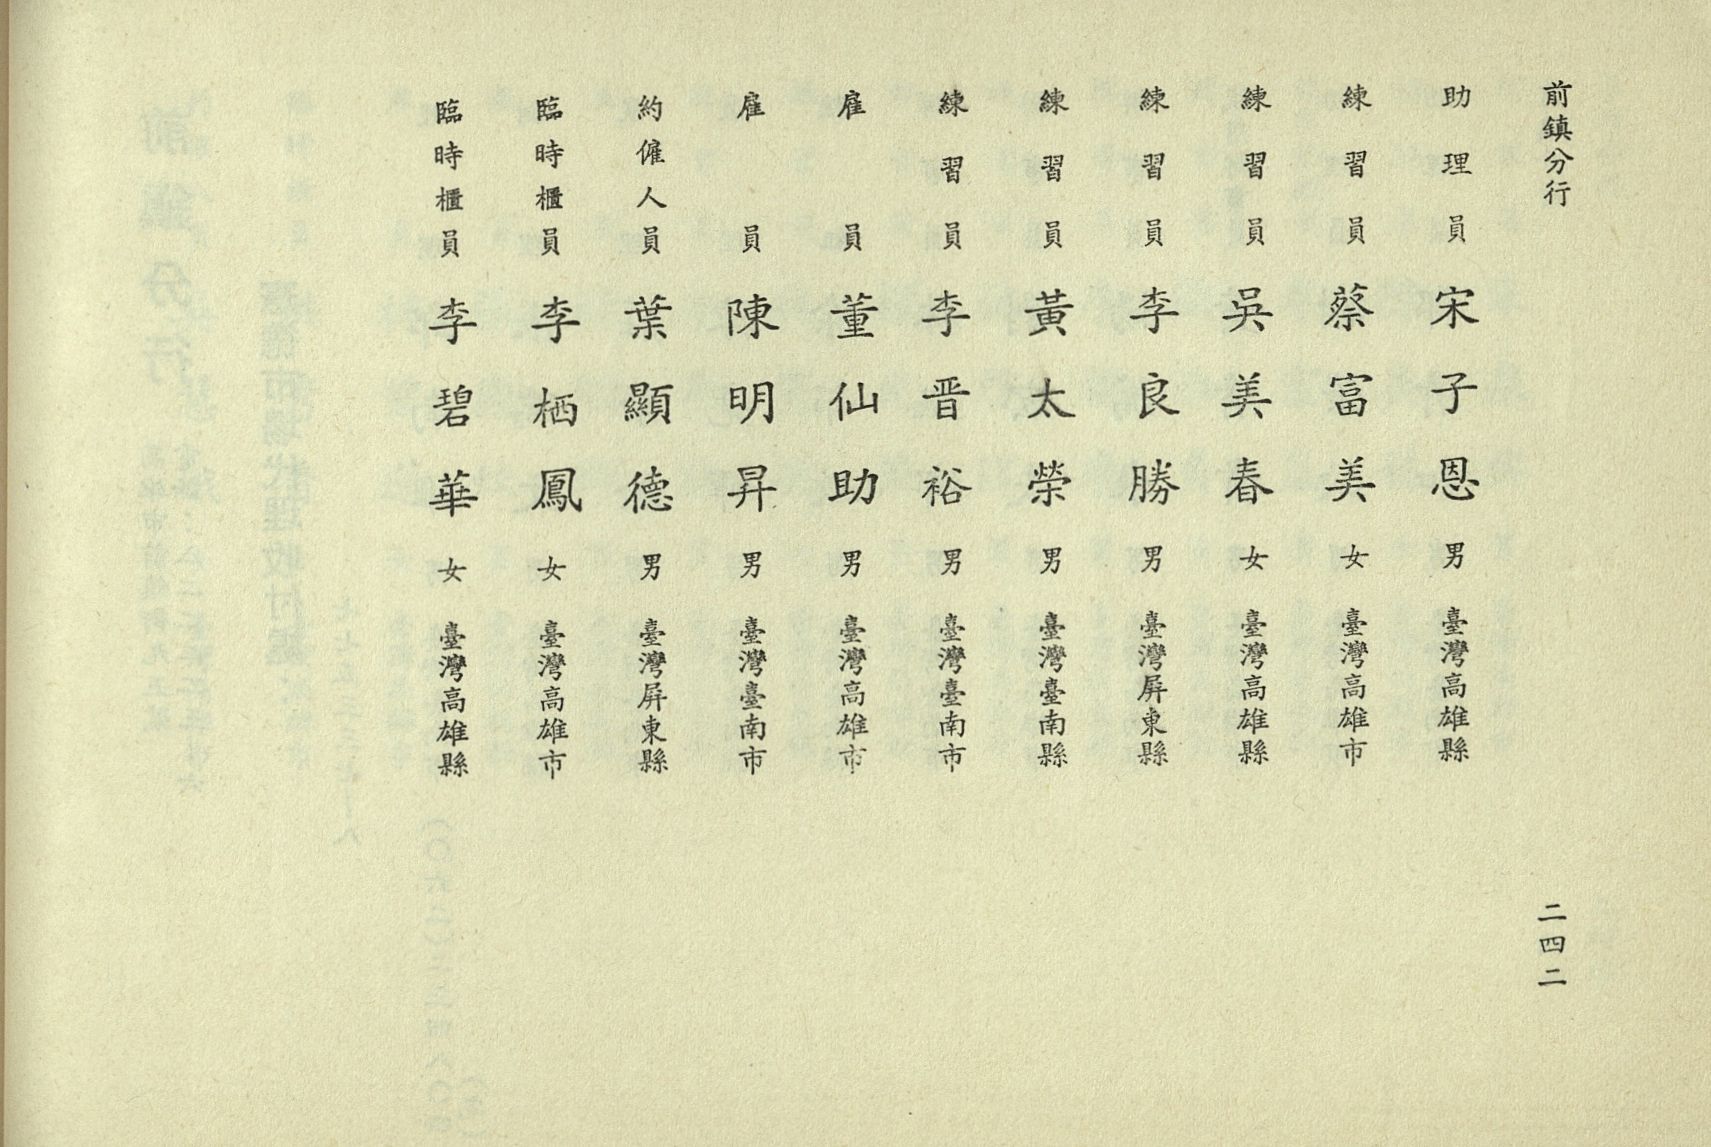 前鎮分行
二四二
助理員 宋子恩 男 臺灣高雄縣
練習員 蔡富美 女 臺灣高雄市
練習員 吳美春 女 臺灣高雄縣
練習員 李良勝 男 臺灣屏東縣
練習員 黃太榮 男 臺灣臺南縣
練習員 李晋裕 男 臺灣臺南市
雇員 董仙助 男 臺灣高雄市
雇員 陳明昇 男 臺灣臺南市
約僱人員 葉顯德 男 臺灣屏東縣
臨時櫃員 李栖鳳 女 臺灣高雄市
臨時櫃員 李碧華 女 臺灣高雄縣